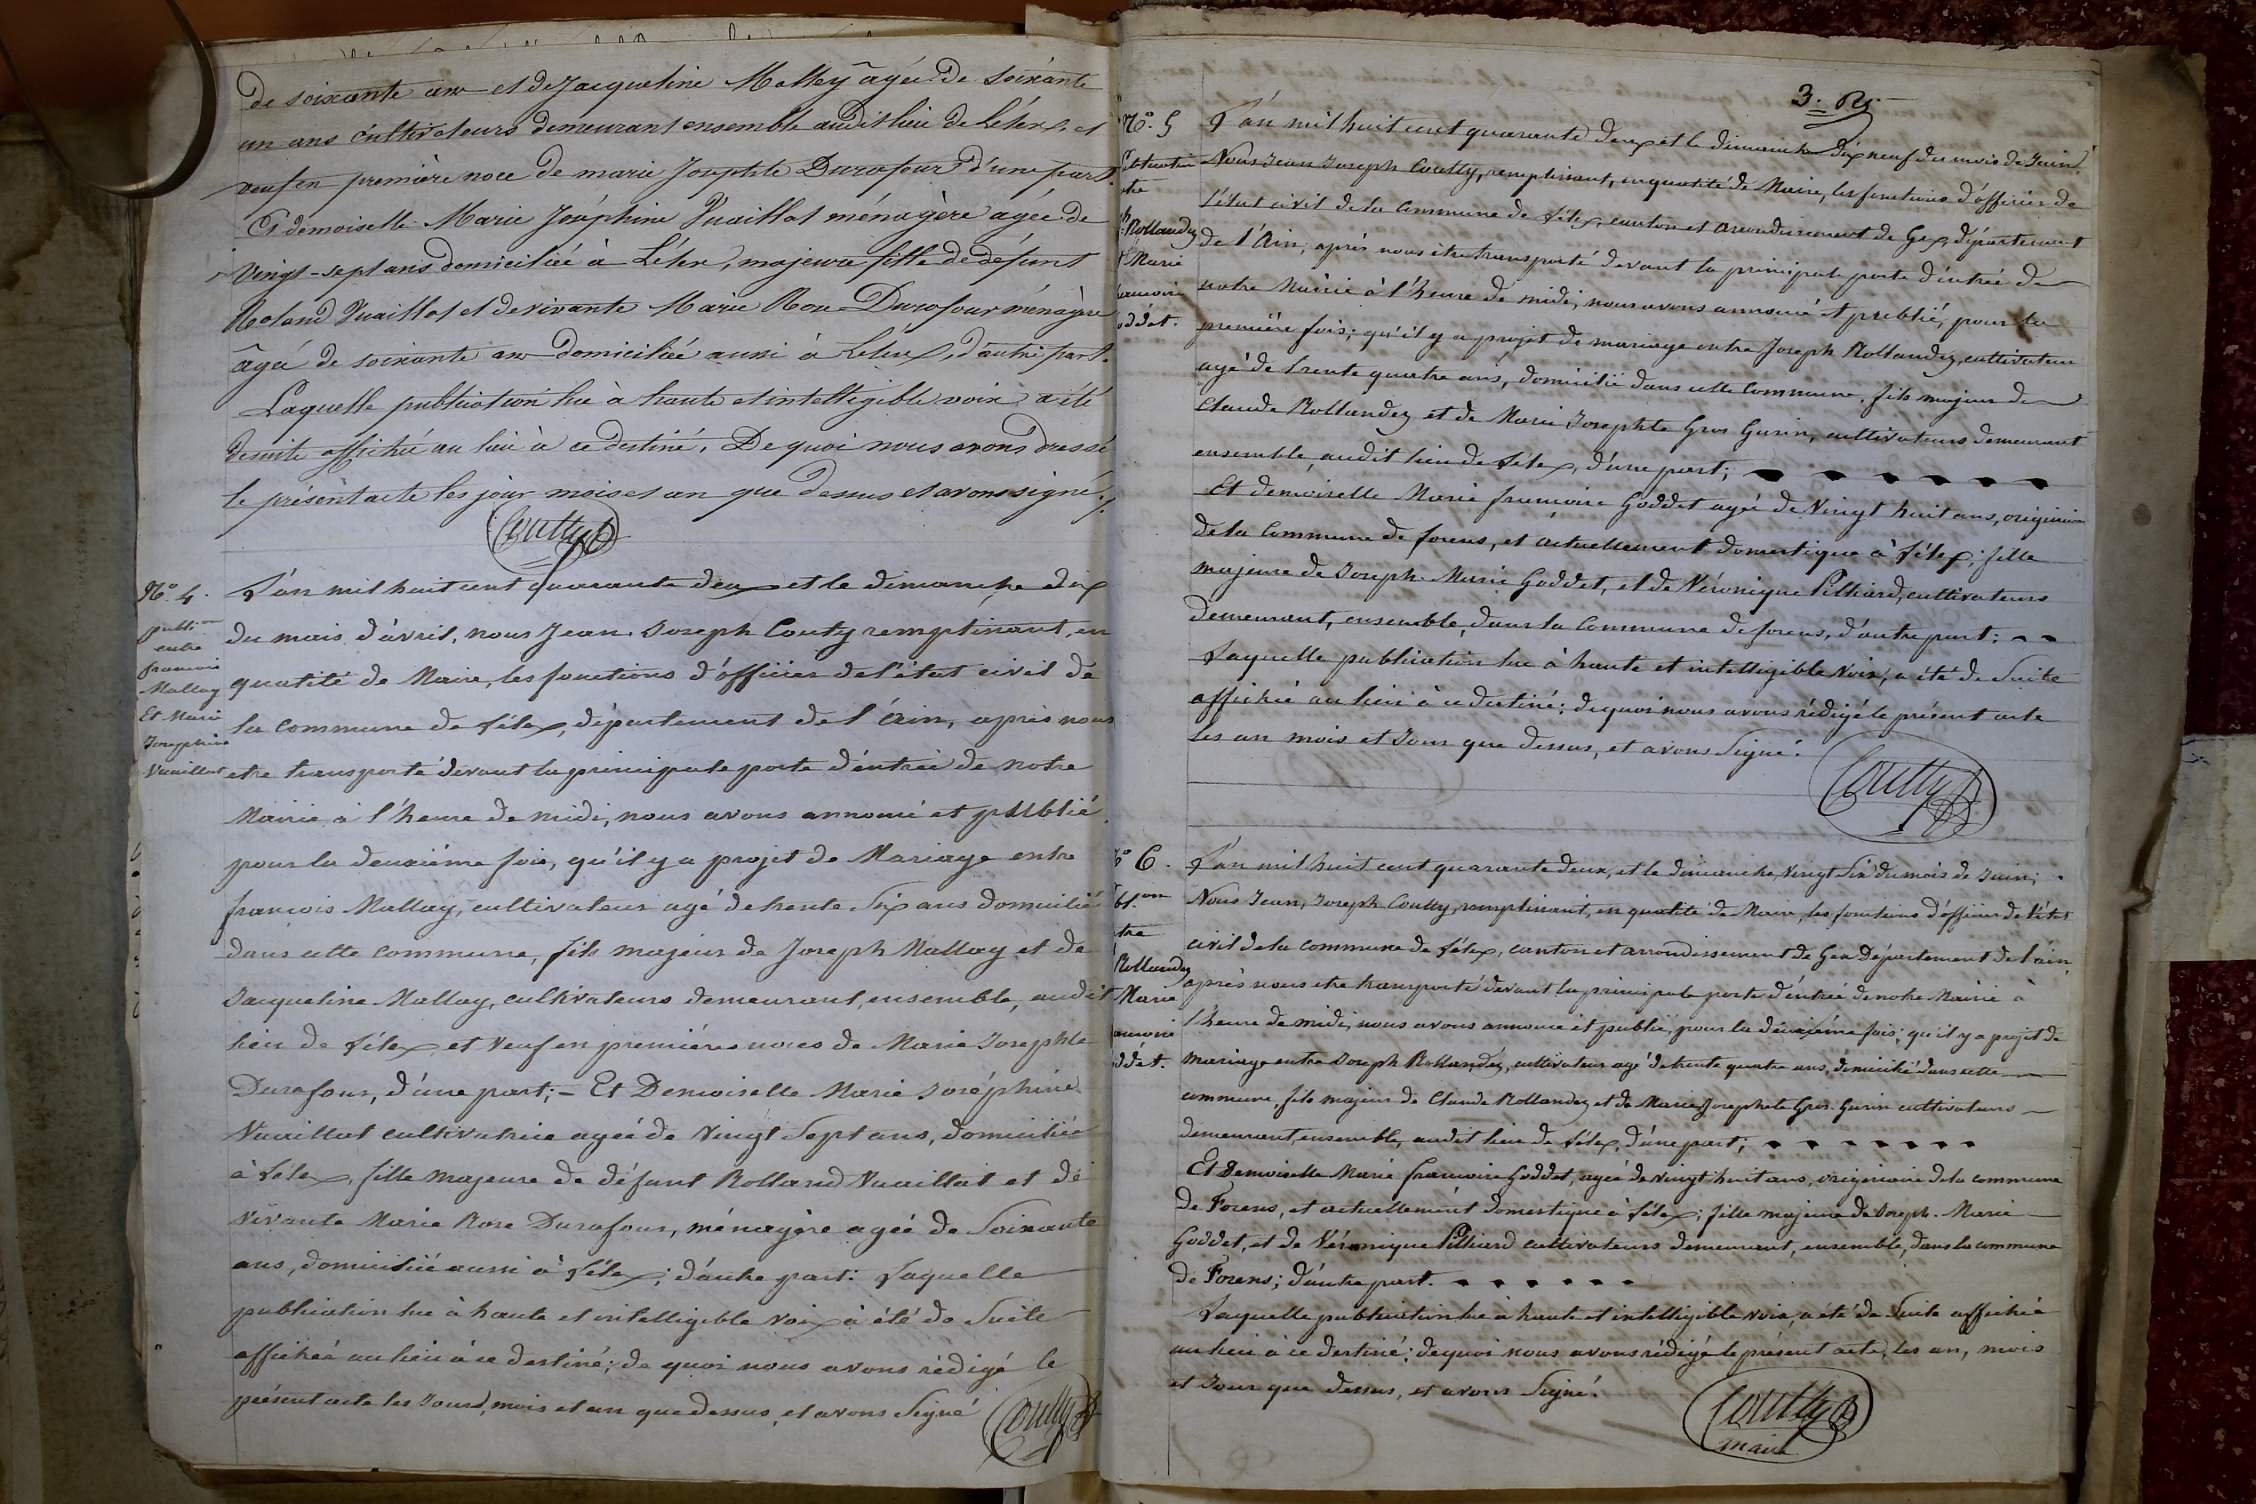 de soixante ans et de Jacqueline Molley âgée de soixante
un ans cultivateurs demeurant ensemble audit lieu de Lélex, et
veuf en première noce de marie Josephte Durafour d'une part.
Et demoiselle Marie Joséphine Vuaillat ménagère agée de
vingt-sept ans domiciliée à Lélex, majeure fille de défunt
Roland Vuaillat et de vivante Marie Rose Durafour ménagère
âgé de soixante ans domiciliée aussi à Lélex, d'autre part.
Laquelle publication lue à haute et intelligible voix a été
de suite affichée au lieu à ce destiné. De quoi nous avons dressé
le présent acte les jour mois et an que dessus et avons signé./.
Coutty
No. 4.
publion
entre
francois
Mallay
Et Marie
Josephine
Vuaillat
L'an mil huit cent quarante deux et le dimanche dix
du mais d'avril, nous Jean Joseph Couty remplissant, en
qualité de Maire, les fonctions d'officier de l'état civil de
la commune de Lélex, département de l'Ain, après nous
etre transporté devant la principale porte d'entrée de notre
Mairie à l'heure de midi, nous avons annoncé et publié
pour la deuxième fois, qu'il y a projet de Mariage entre
francois Mallay, cultivateur agé de trente Six ans domicilié
dans cette commune, fils majeur de Joseph Mallay et de
Jacqueline Mallay, cultivateurs demeurant, ensemble, audit
lieu de Lélex, et Veuf en premières noces de Marie Josephte
Durafour, d'une part; - Et Demoiselle Marie Joséphine
Vuaillat cultivatrice agée de Vingt Sept ans, domiciliée
à Lélex, fille majeure de défunt Rolland Vuaillat et de
vivante Marie Rose Durafour, ménagère agée de Soixante
ans, domiciliée aussi à Lélex; d'autre part: Laquelle
publication lue à haute et intelligible voix a été de Suite
affichée au lieu à ce destiné; de quoi nous avons rédigé le
présent acte les Jours, mois et an que dessus, et avons Signé
Coutty
3.
No. 5
Rollandez
Marie
L'an mil huit cent quarante deux et le dimanche dix neuf du mois de Juin,
Nous Jean Joseph Coutty, remplissant, en qualité de Maire, les fonctions d'officier de
l'état civil de la Commune de Lélex, canton et arrondissement de Gex, département
de l'Ain, après nous etre transporté devant la principale porte d'entrée de
notre Mairie à l'heure de midi, nous avons annoncé et publié, pour la
première fois; qu'il y a projet de mariage entre Joseph Rollandez, cultivateur
agé de trente quatre ans, domicilié dans cette commune, fils majeur de
Claude Rollandez et de Marie Josephte Gros Gurin, cultivateurs demeurant
ensemble, audit lieu de Lélex, d'une part;
Et demoiselle Marie francoise Goddet agée de Vingt huit ans, originaire
de la Commune de forens, et actuellement domestique à Lélex; fille
majeure de Joseph. Marie Goddet, et de Véronique Pilliard, cultivateurs
demeurant, ensemble, dans la Commune de forens, d'autre part;
Laquelle publication lue à haute et intelligible Voix, a été de Suite
affichée au lieu à ce destiné; de quoi nous avons rédigé le présent acte
les an mois et Jour que dessus, et avons Signé.
Coutty
6.
Rollandez
Marie
L'an mil huit cent quarante deux, et le dimanche, Vingt Six du mois de Juin;
Nous Jean, Joseph Coutty, remplissant, en qualité de Maire, les fonctions d'officier de l'état
civil de la commune de Lélex, canton et arrondissement de Gex Département de l'ain,
après nous etre transporté devant la principale porte d'entrée de notre Mairie à
l'heure de midi, nous avons annoncé et publié, pour la deuxième fois; qu'il y a projet de
mariage entre Joseph Rollandez, cultivateur agé de trente quatre ans, domicilié dans cette
commune, fils majeur de Claude Rollandez et de Marie Josephete Gros Gurin cultivateurs
demeurant, ensemble, audit lieu de Lélex, d'une part;
Et Demoiselle Marie francoise Goddet, agée de vingt huit ans, originaire de la commune
de Forens, et actuellement domestique à Lélex; fille majeure de Joseph. Marie
Goddet, et de Véronique Pilliard cultivateurs demeurant, ensemble, dans la commune
de Forens; d'autre part.
Laquelle publication lue à haute et intelligible voix, a été de Suite affichée
au lieu à ce destiné; de quoi nous avons rédigé le présent acte, les an, mois
et Jour que dessus, et avons Signé.
Coutty
maire